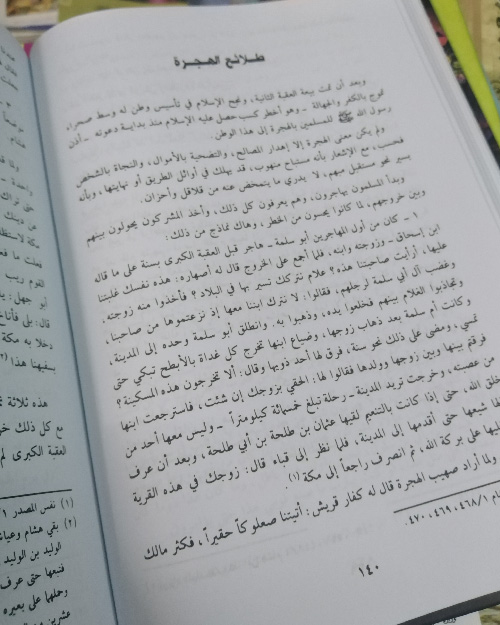 طلائع الهجرة
وبعد أن تمت بيعة العقبة الثانية، ونجح الإسلام في تأسيس وطن له وسط صحراء
تموج بالكفر والجهالة ـ وهو أخطر كسب حصل عليه الإسلام منذ بداية دعوته ـ أذن
رسول الله ﷺ للمسلمين بالهجرة إلى هذا الوطن.
ولم يكن معنى الهجرة إلا إهدار المصالح، والتضحية بالأموال، والنجاة بالشخص
فحسب، مع الإشعار بأنه مستباح منهوب، قد يهلك في أوائل الطريق أو نهايتها، وبأنه
يسير نحو مستقبل مبهم، لا يدري ما يتمخض عنه من قلاقل وأحزان.
وبدأ المسلمون يهاجرون، وهم يعرفون كل ذلك، وأخذ المشركون يحولون بينهم
وبين خروجهم، لما كانوا يحسون من الخطر، وهاك نماذج من ذلك:
١ ـ كان من أول المهاجرين أبو سلمة ـ هاجر قبل العقبة الكبرى بسنة على ما قاله
ابن إسحاق ـ وزوجته وابنه، فلما أجمع على الخروج قال له أصهاره: هذه نفسك غلبتنا
عليها، أرأيت صاحبتنا هذه؟ علام نتركك تسير بها في البلاد؟ فأخذوا منه زوجته،
وغضب آل أبي سلمة لرجلهم، فقالوا: لا نترك ابننا معها إذ نزعتموها من صاحبنا،
وتجاذبوا الغلام بينهم فخلعوا يده، وذهبوا به. وانطلق أبو سلمة وحده إلى المدينة،
وكانت أم سلمة بعد ذهاب زوجها، وضياع ابنها تخرج كل غداة بالأبطح تبكي حتى
تمسي، ومضى على ذلك نحو سنة، فرق لها أحد ذويها وقال: ألا تخرجون هذه المسكينة؟
فرقتم بينها وبين زوجها وولدها فقالوا لها: الحقي بزوجك إن شئت، فاسترجعت ابنها
من عصبته، وخرجت تريد المدينة ـ رحلة تبلغ خمسمائة كيلومتراً ـ وليس معها أحد من
خلق الله، حتى إذا كانت بالتنعيم لقيها عثمان بن طلحة بن أبي طلحة، وبعد أن عرف
شيعها حتى أقدمها إلى المدينة، فلما نظر إلى قباء قال: زوجك في هذه القرية
على بركة الله، ثم انصرف راجعاً إلى مكة (١).
ولما أراد صهيب الهجرة قال له كفار قريش: أتيتنا صعلوكاً حقيراً، فكثر مالك
٤٦٨/١، ٤٦٩، ٤٧٠.
١٤٠
هذه ثلاثة
مع كل ذلك
العقبة الكبرى
(١) نفس المصدر
(٢) بقي هشام
الوليد بن الوليد
فتبعها حتى عرف
وحملها على بعيره
عشرين من